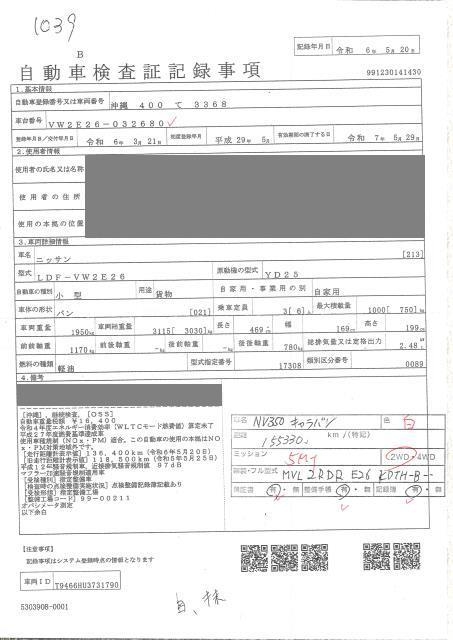 1039
記録年月日 令和 6年 5月 20日
B
自動車検査証記録事項
991230141430
1.基本情報
自動車登録番号又は車両番号 沖縄 400 て 3368
車台番号 VW2E26-032680
登録年月日/交付年月日 令和 6年 3月 21日 初度登録年月 平成 29年 5月 有効期間の満了する日 令和 7年 5月 29日
2.使用者情報
使用者の氏名又は名称
使用者の住所
使用の本拠の位置
3.車両詳細情報
車名 ニッサン [213]
型式 LDF-VW2E26 原動機の型式 YD25
自動車の種別 小型 用途 貨物 自家用・事業用の別 自家用
車体の形状 バン [021] 乗車定員 3[ 6]人 最大積載量 1000[ 750]kg
車両重量 1950kg 車両総重量 3115[ 3030]kg 長さ 469cm 幅 169cm 高さ 199cm
前前軸重 1170kg 前後軸重 -kg 後前軸重 -kg 後後軸重 780kg 総排気量又は定格出力 2.48L
燃料の種類 軽油 型式指定番号 17308 類別区分番号 0089
4.備考
[沖縄],継続検査,[055]
自動車重量税額 ¥16,400
令和4年度エネルギー消費効率(WLTCモード燃費値)算定未了
平成27年度燃費基準達成車
使用車種規制(NOx・PM)適合,この自動車の使用の本拠はNO
x・PM対策地域外です。
[走行距離計表示値]136,400km(令和6年5月20日)
[旧走行距離計表示値]118,500km(令和5年5月25日)
平成12年騒音規制車,近接排気騒音規制値 97dB
マフラー加速騒音規制適用車
[受検種別]指定整備車
[検査時の点検整備実施状況]点検整備記録簿記載あり
[受検形態]指定整備工場
[整備工場コード]99-00211
オパシメータ測定
以下余白
車名 NV350 キャラバン 色 白
距離 155330 km/(特記)
ミッション 5MT 2WD・4WD
MVL2RDRE26
保証書 有・無 整備手帳 有・無 記録簿 有・無
[注意事項]
記録事項はシステム登録時点の情報となります
車両ID T9466HU3731790
5303908-0001